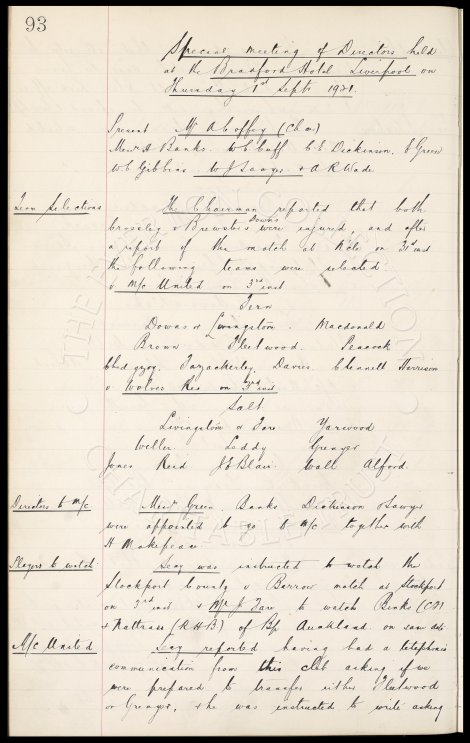 93
Special meeting of Directors held
at the Bradford Hotel Liverpool on
Thursday 1st Sept 1921.
Present Mr A Coffey (Chair)
Messrs A Banks. W C Cuff. C E Dickinson. E Green
W C Gibbins. W J Sawyer & A R Wade.
Team Selections
The Chairman reported that both
Brewster Downs were injured, and after
a report of the match at Hole on 31st inst
the following teams were selected
v M/c United on 3rd inst
Fern
Downs or Livingstone. Macdonald
Brown Fleetwood. Peacock
Chedgzoy. Fazackerley. Davies. Crossley Harrison
v Wolves Res on 3rd inst
Salt
Livingstone or Fare Yarwood
Weller Leddy Grenyer
Jones Reid J E Blair Wall Alford.
Directors to M/c
Messrs Green. Banks Dickinson & Sawyer
were appointed to go to M/c together with
H Makepeace.
Players to watch
Secy was instructed to watch the
Stockport County v Barrow match at Stockport
on 3rd inst & Mr J Fare to watch Rinks (C.F.)
& Nattrass (R.H.B) of Bp Auckland on same date
M/c United
Secy reported having had a telephonic
communication from this club asking if we
were prepared to transfer either Fleetwood
or Grenyer, & he was instructed to write asking